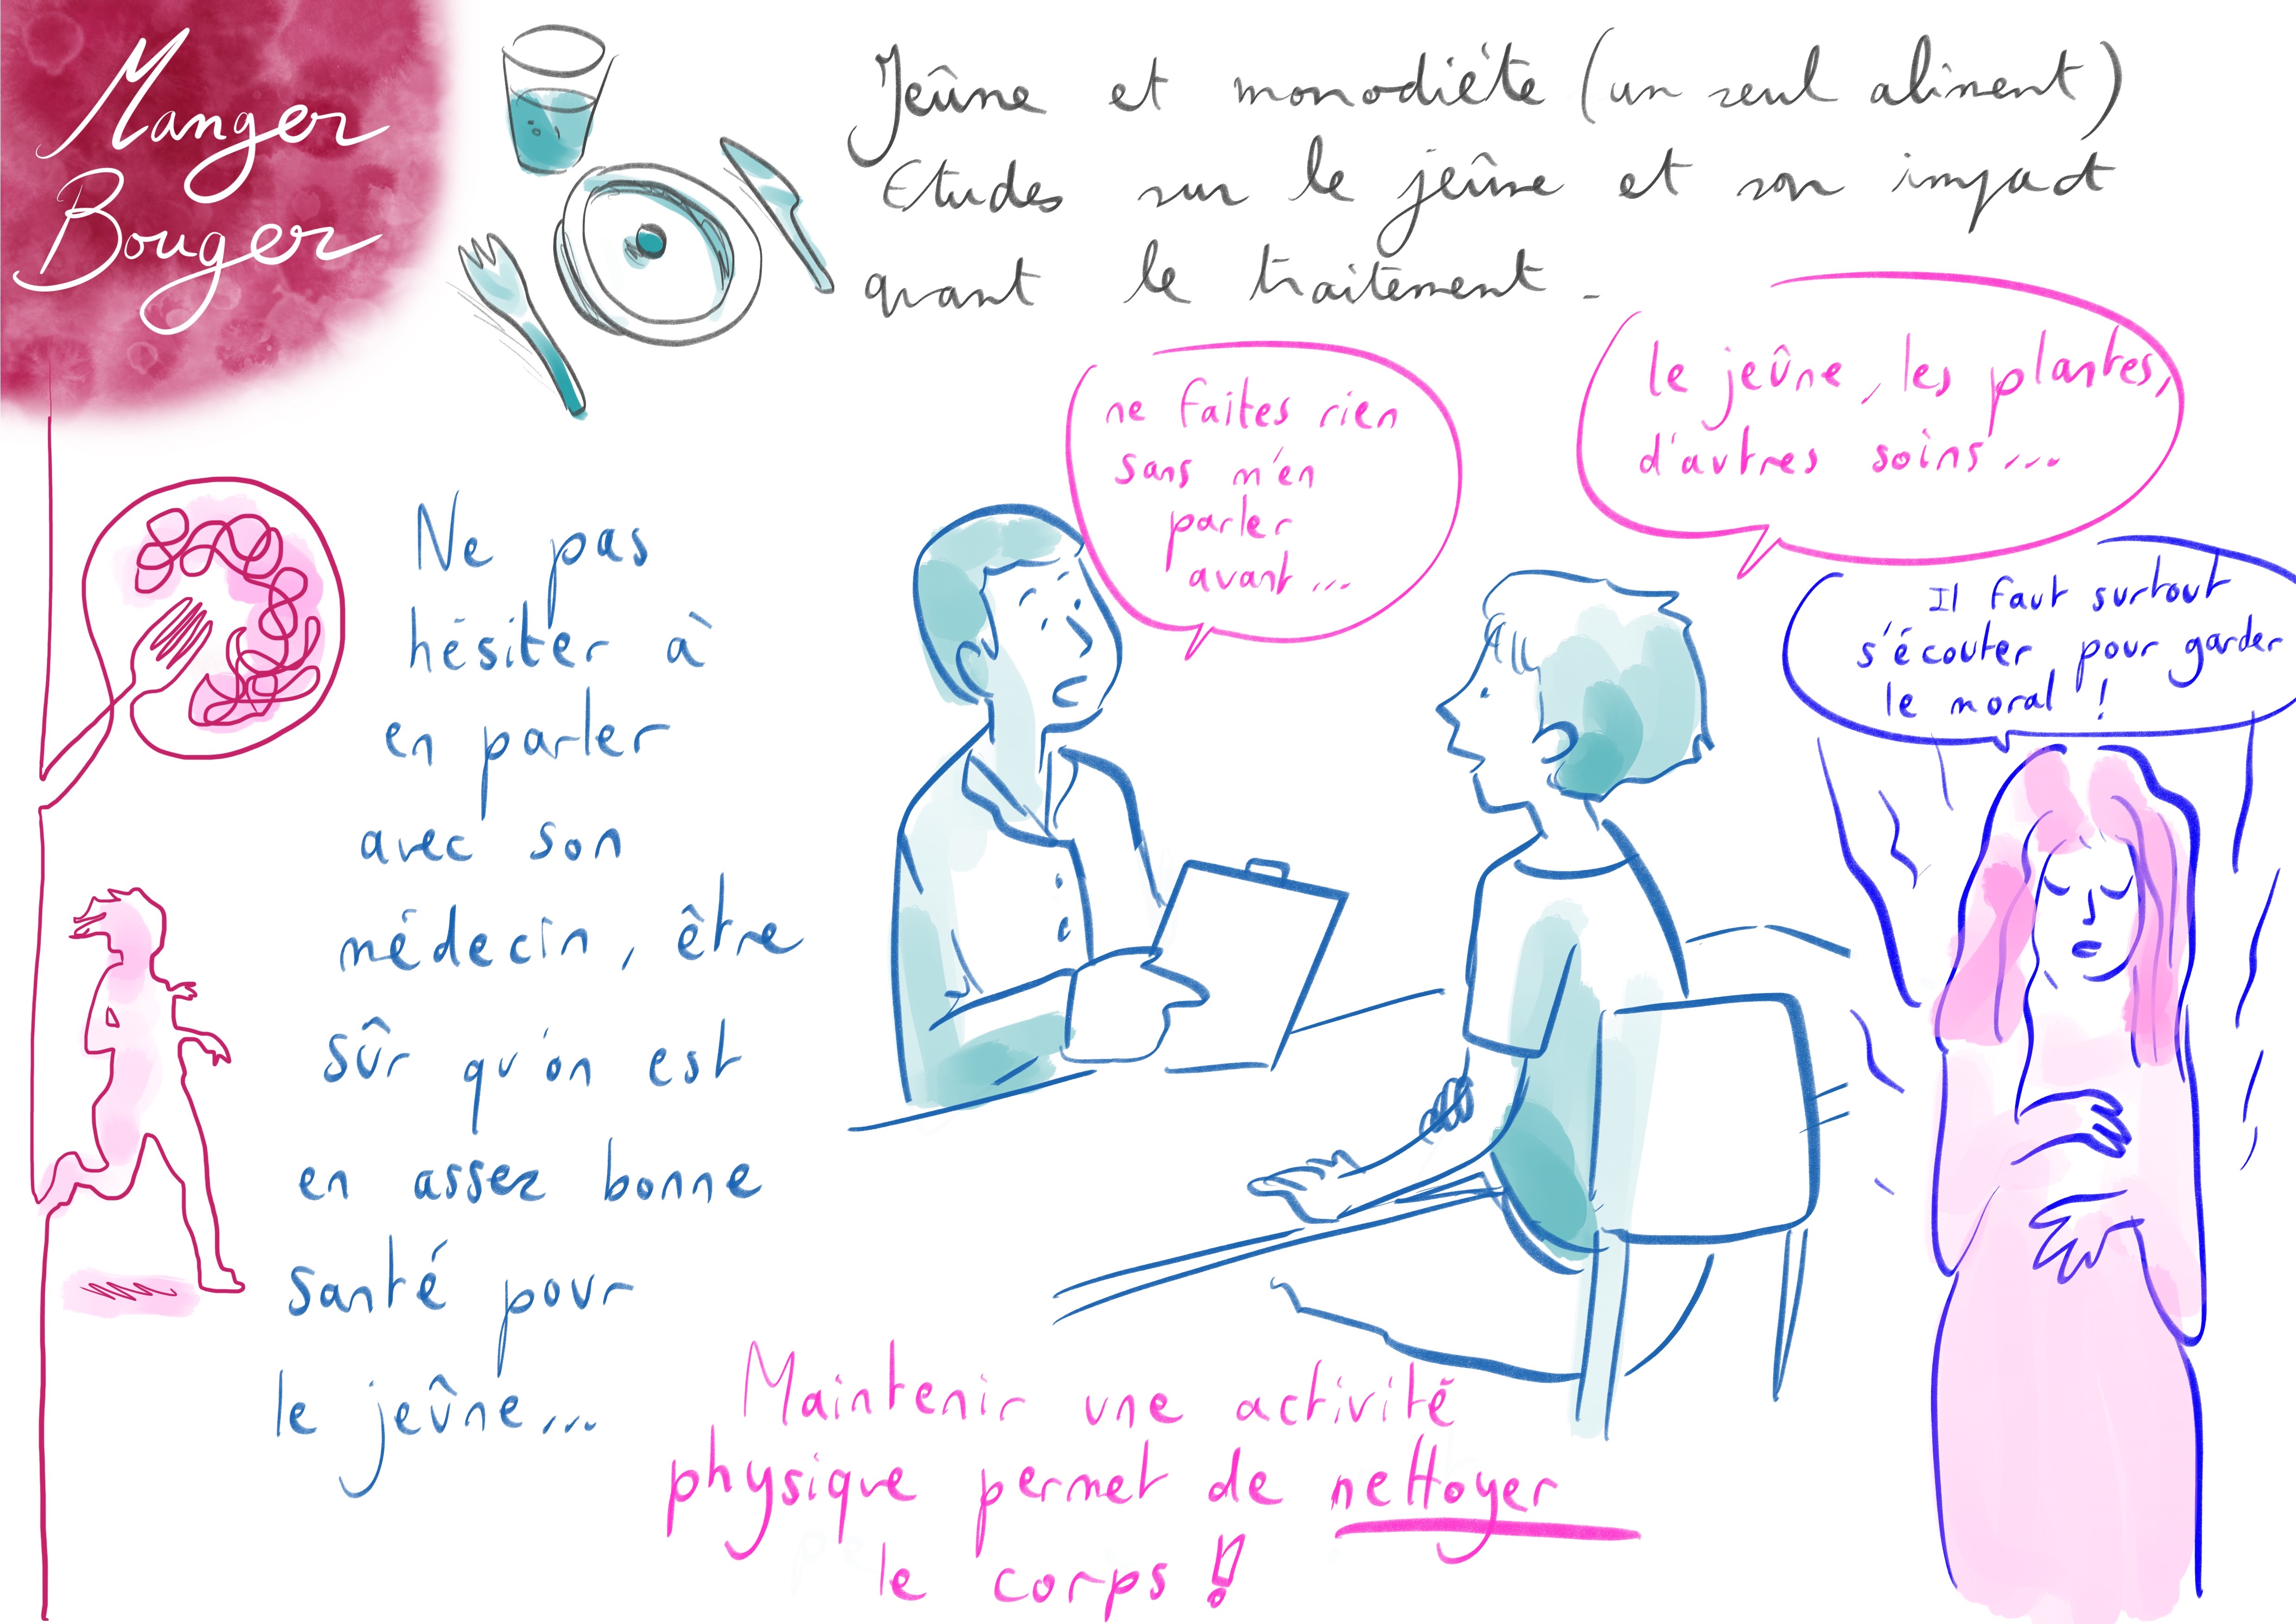 Manger
Bouger
Jeûne et monodiète (un seul aliment)
Etudes sur le jeûne et son impact
quant le traitement.
ne faites rien
sans m'en
parler
avant...
le jeûne, les plantes,
d'autres soins...
Il faut surtout
s'écouter pour garder
le moral !
Ne pas
hésiter à
en parler
avec son
médecin, être
sûr qu'on est
en assez bonne
santé pour
le jeûne...
Maintenir une activité
physique permet de nettoyer
le corps !